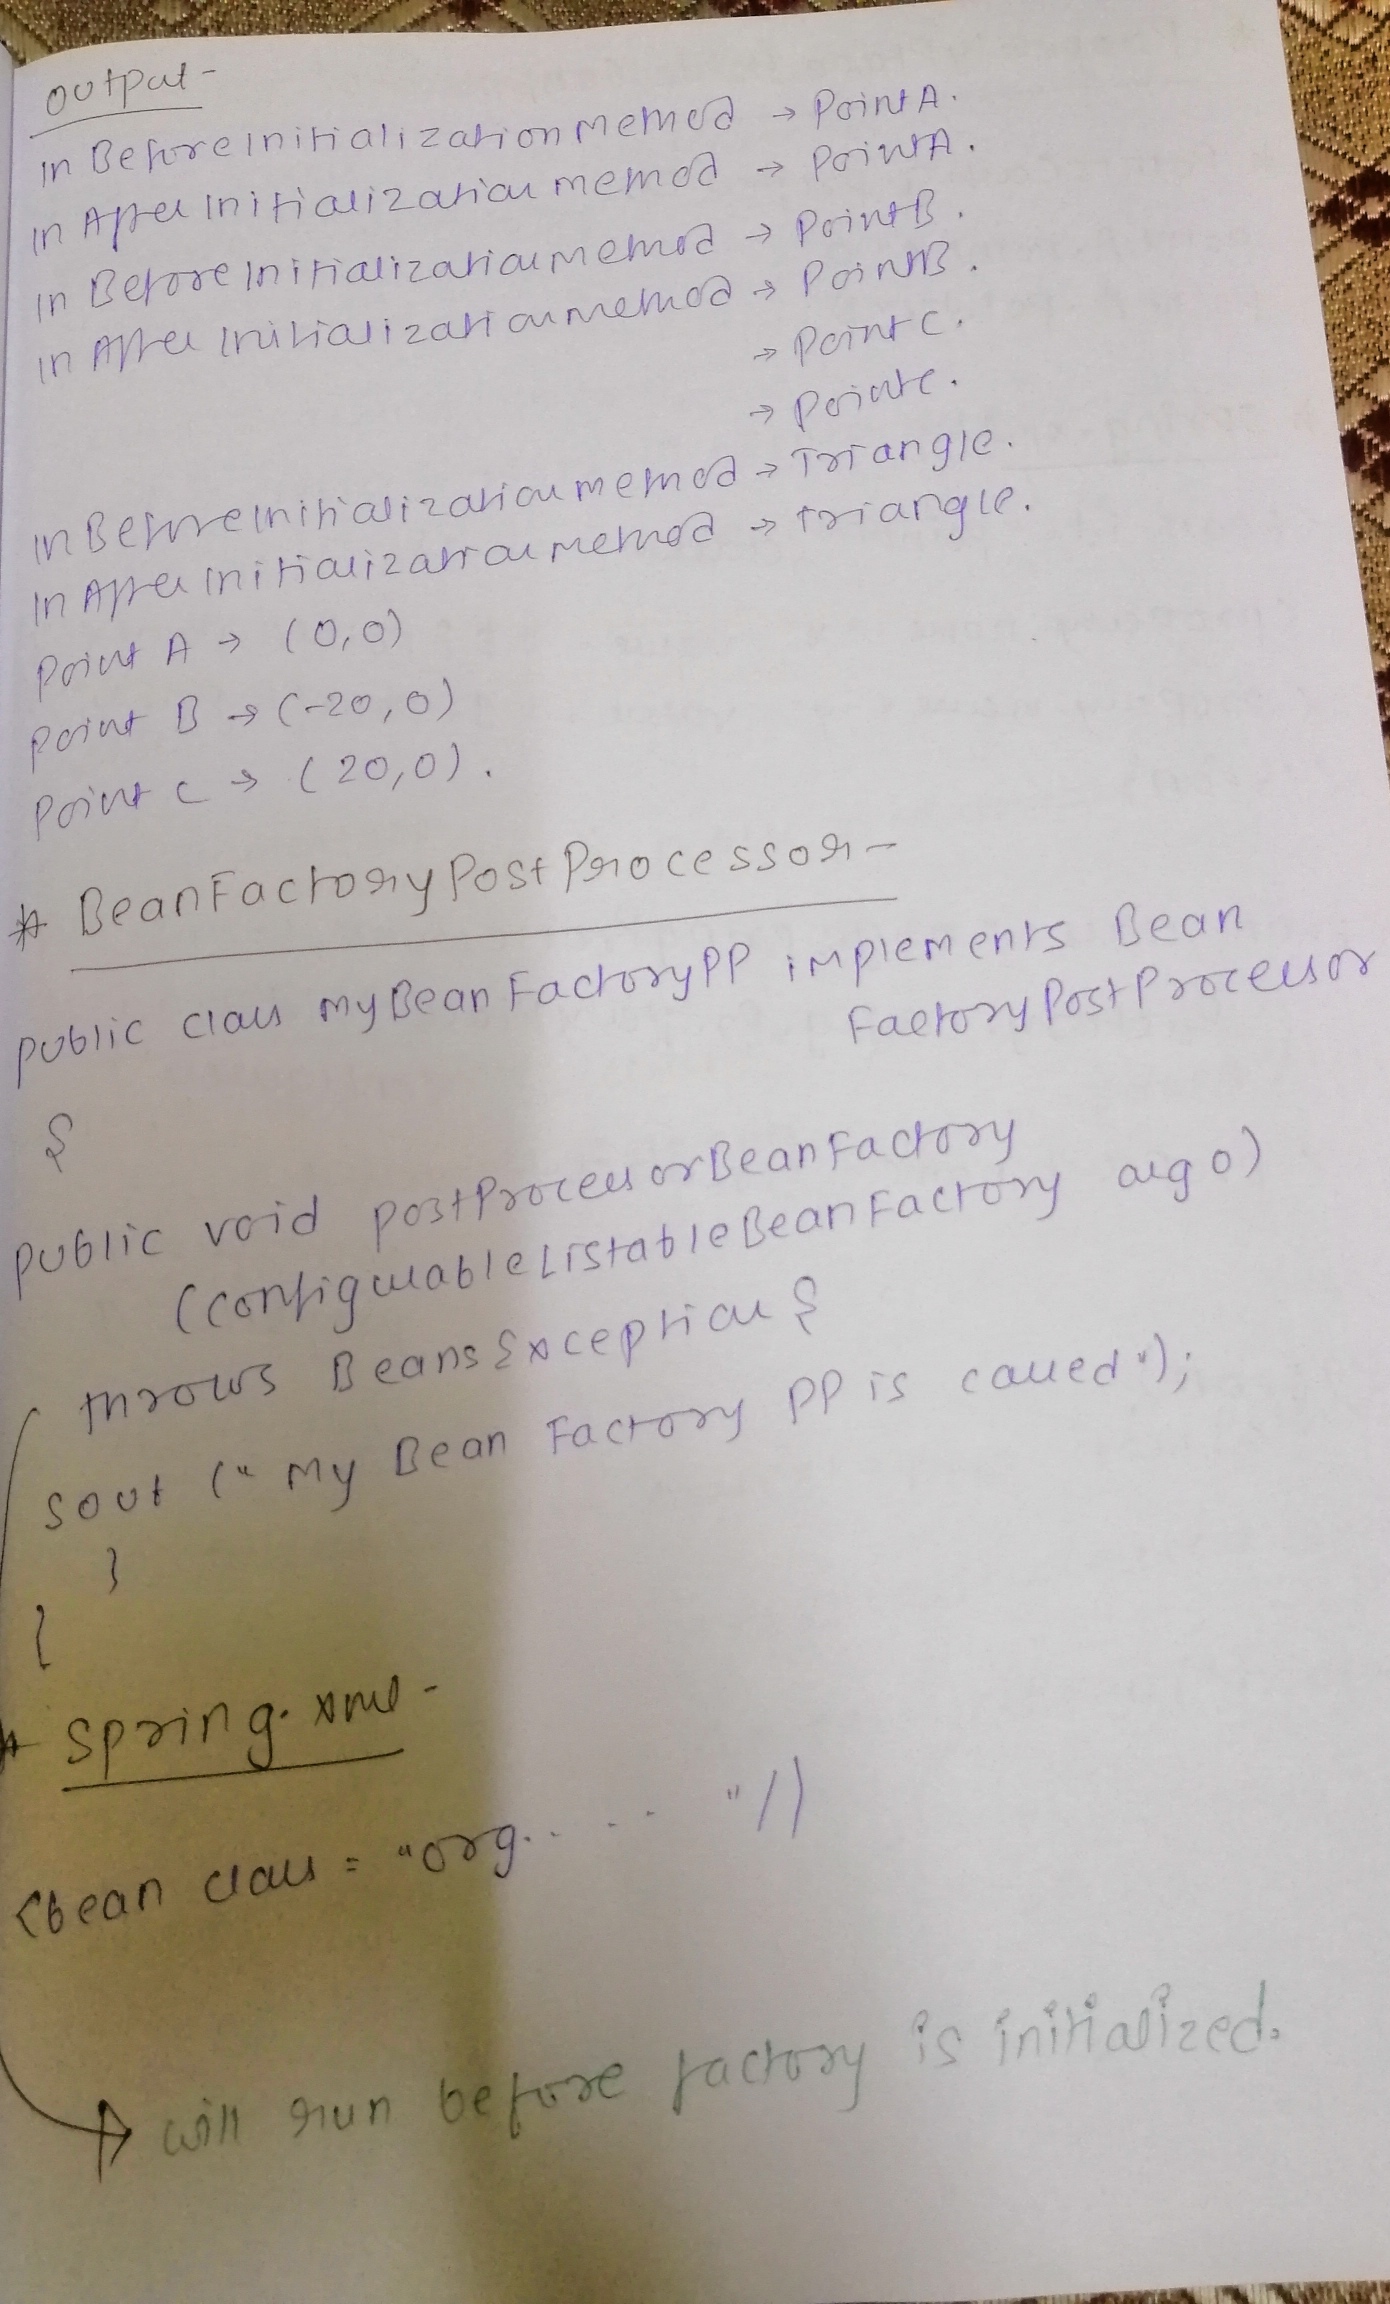 output -
In Before Initialization Method → Point A.
In After Initialization method → Point A.
In Before Initialization Method → Point B.
In After Initialization method → Point B.
→ Point C.
→ Point C.
In Before Initialization method → Triangle.
In After Initialization Method → triangle.
Point A → (0,0)
Point B → (-20,0)
Point C → (20,0).
* BeanFactoryPostProcessor -
public class MyBeanFactoryPP implements Bean
FactoryPostProcessor
{
public void postProcessorBeanFactory
(ConfigurableListableBeanFactory arg0)
throws BeansException {
sout ("My Bean Factory PP is called");
}
}
* Spring.xml -
<bean class = "org..... "/>
→ will run before factory is initialized.